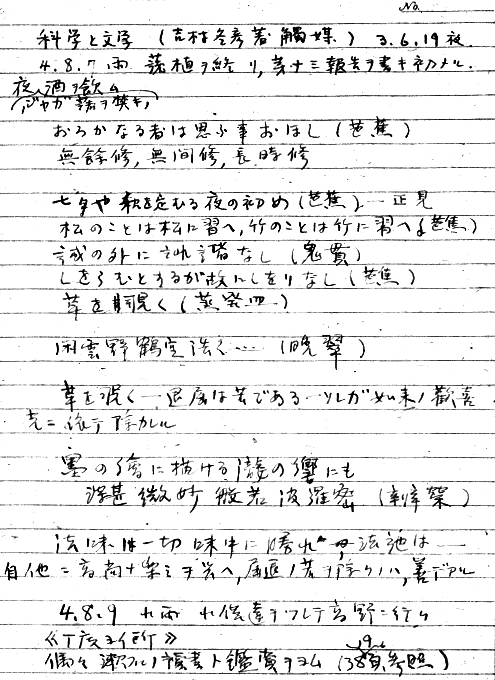 No.
科学と文学 (吉村冬彦著 触媒) 3.6.19夜
4.8.7 雨 藷植ヲ終リ,第十三報告ヲ書キ初メル.
夜,酒ヲ飲ム
ジャガ藷ヲ
おろかなる者は思ふ事おほし (芭蕉)
無餘修,無间修,長時修
七夕や 秋を定むる夜の初め (芭蕉)… 正見
松のことは松に習へ,竹のことは竹に習へ (芭蕉)
誠の外に 諧なし (鬼貫)
しをらむとするが故にしをりなし (芭蕉)
草を覗く (蒸発皿)
闲雲野鶴空 … (晩翠)
草を覗く… 退屈は苦である…ソレガ如来ノ歓喜
光ニ依テ除カレル
墨の繪に描ける瀧の響にも
深甚微妙 般若波羅密
法味は一切味中に勝れ 法池は…
自他ニ高尚ナ楽ミヲ與へ,屈 ノ苦ヲ除クノハ,善デアル
4.8.9 雨 供達ヲツレテ高野ニ行ム
《丁度 》
偶々 ノ讀書ト鑑賞ヲヨム (39頁参照)